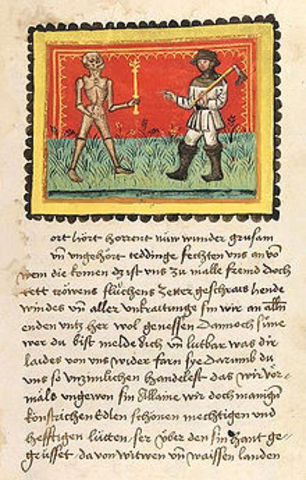 ort hört horrent nüw wunder grusam
vn̄ ungehört teddinge fechten uns an vō
wem die komen dz ist uns zu malle fremd doch
trett tröwens flüchens zetter geschrais hende
windes vn̄ aller unkraitunge sin wir an alln̄
enden untz her wol genessen Dannoch süne
wer du bist melde dich vn̄ lutbar was dir
laides von uns wider farn sye Darumb du
uns so unzimlichen handelest das wir vor=
mals ungewon sin Allaine wir doch mānign̄
künstrichen Edlen schönen mechtigen und
hefftigen lütten ser über den sin hant ge=
grüsset da von witwen vn̄ waissen landen